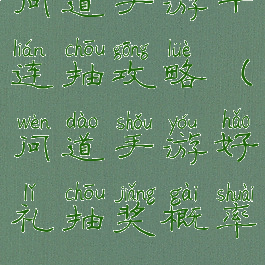 问道手游年
lián chōu gōng lüè
连抽攻略（
wèn dào shǒu yóu hǎo
问道手游好
lǐ chōu jiǎng gài shuài
礼抽奖概率